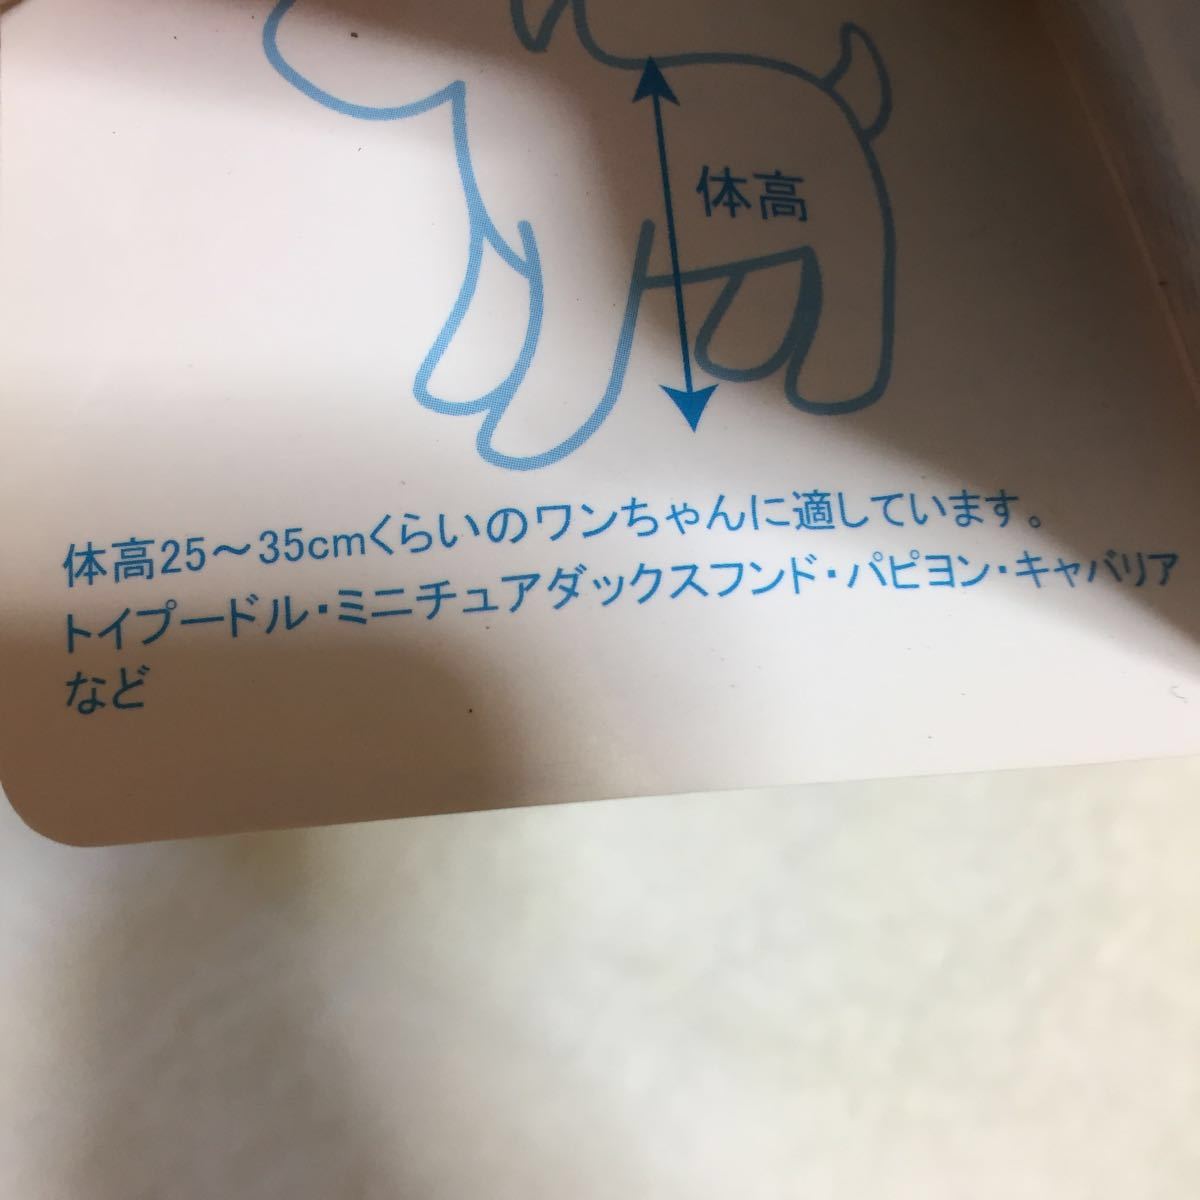 体高
体高25～35cmくらいのワンちゃんに適しています。
トイプードル・ミニチュアダックスフンド・パピヨン・キャバリア
など